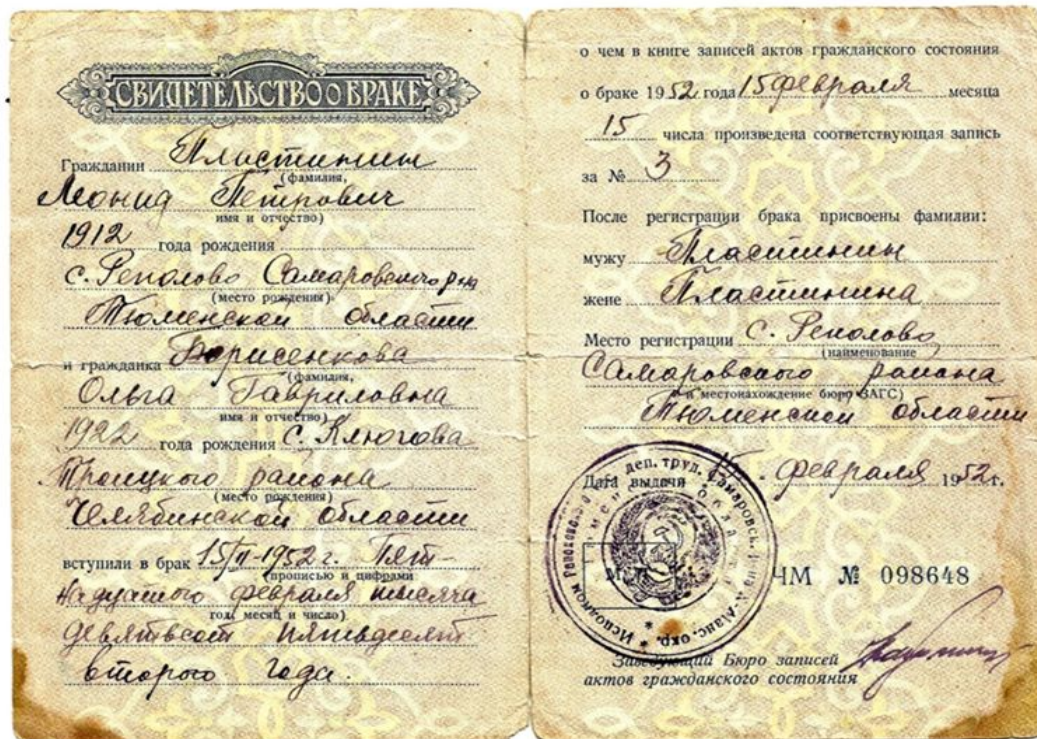 СВИДЕТЕЛЬСТВО О БРАКЕ
Гражданин Пластинин
(фамилия,
Леонид Петрович
имя и отчество)
1912 года рождения
с. Реполово Самаровского р-на
(место рождения)
Тюменской области
и гражданка Борисенкова
(фамилия,
Ольга Гавриловна
имя и отчество)
1922 года рождения с. Клюгова
Троицкого района
(место рождения)
Челябинской области
вступили в брак 15/II-1952 г. Пят-
(прописью и цифрами
надцатого февраля тысяча
год, месяц и число)
девятьсот пятьдесят
второго года.
о чем в книге записей актов гражданского состояния
о браке 1952 года 15 февраля месяца
15 числа произведена соответствующая запись
за № 3
После регистрации брака присвоены фамилии:
мужу Пластинин
жене Пластинина
Место регистрации с. Реполово
(наименование
Самаровского района
и местонахождение бюро ЗАГС)
Тюменской области
Дата выдачи 15. февраля 1952 г.
деп. труд. Самаровск.
Исполком
М
ЧМ № 098648
Заведующий Бюро записей
актов гражданского состояния